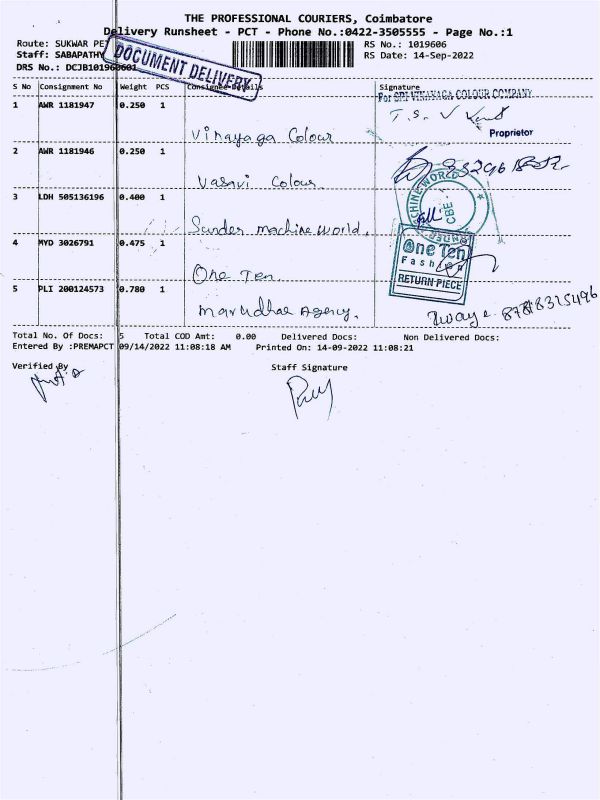 THE PROFESSIONAL COURIERS, Coimbatore
Delivery Runsheet - PCT - Phone No.:0422-3505555 - Page No.:1
Route: SUKWAR PE
RS No.: 1019606
Staff: SABAPATHY
RS Date: 14-Sep-2022
DRS No.: DCJB101960601
DOCUMENT DELIVERY
S No Consignment No Weight PCS Consignee Details Signature
For SRI VINAYAGA COLOUR COMPANY
1 AWR 1181947 0.250 1
T.S. V
Vinayaga Colour
Proprietor
2 AWR 1181946 0.250 1
Vasavi Colour
3 LDH 505136196 0.400 1
Sunder machine world.
CBE -
4 MYD 3026791 0.475 1
One Ten
Fashion
RETURN PIECE
One Ten
5 PLI 200124573 0.780 1
marudhar Agency.
Total No. Of Docs: 5 Total COD Amt: 0.00 Delivered Docs: Non Delivered Docs:
Entered By :PREMAPCT 09/14/2022 11:08:18 AM Printed On: 14-09-2022 11:08:21
Verified By
Staff Signature